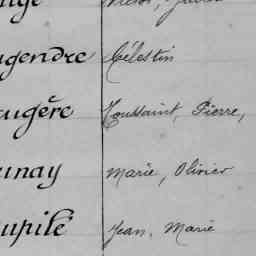 ugendre Célestin
eugère Toussaint, Pierre,
unay Marie, Olivier
upilé Jean, Marie